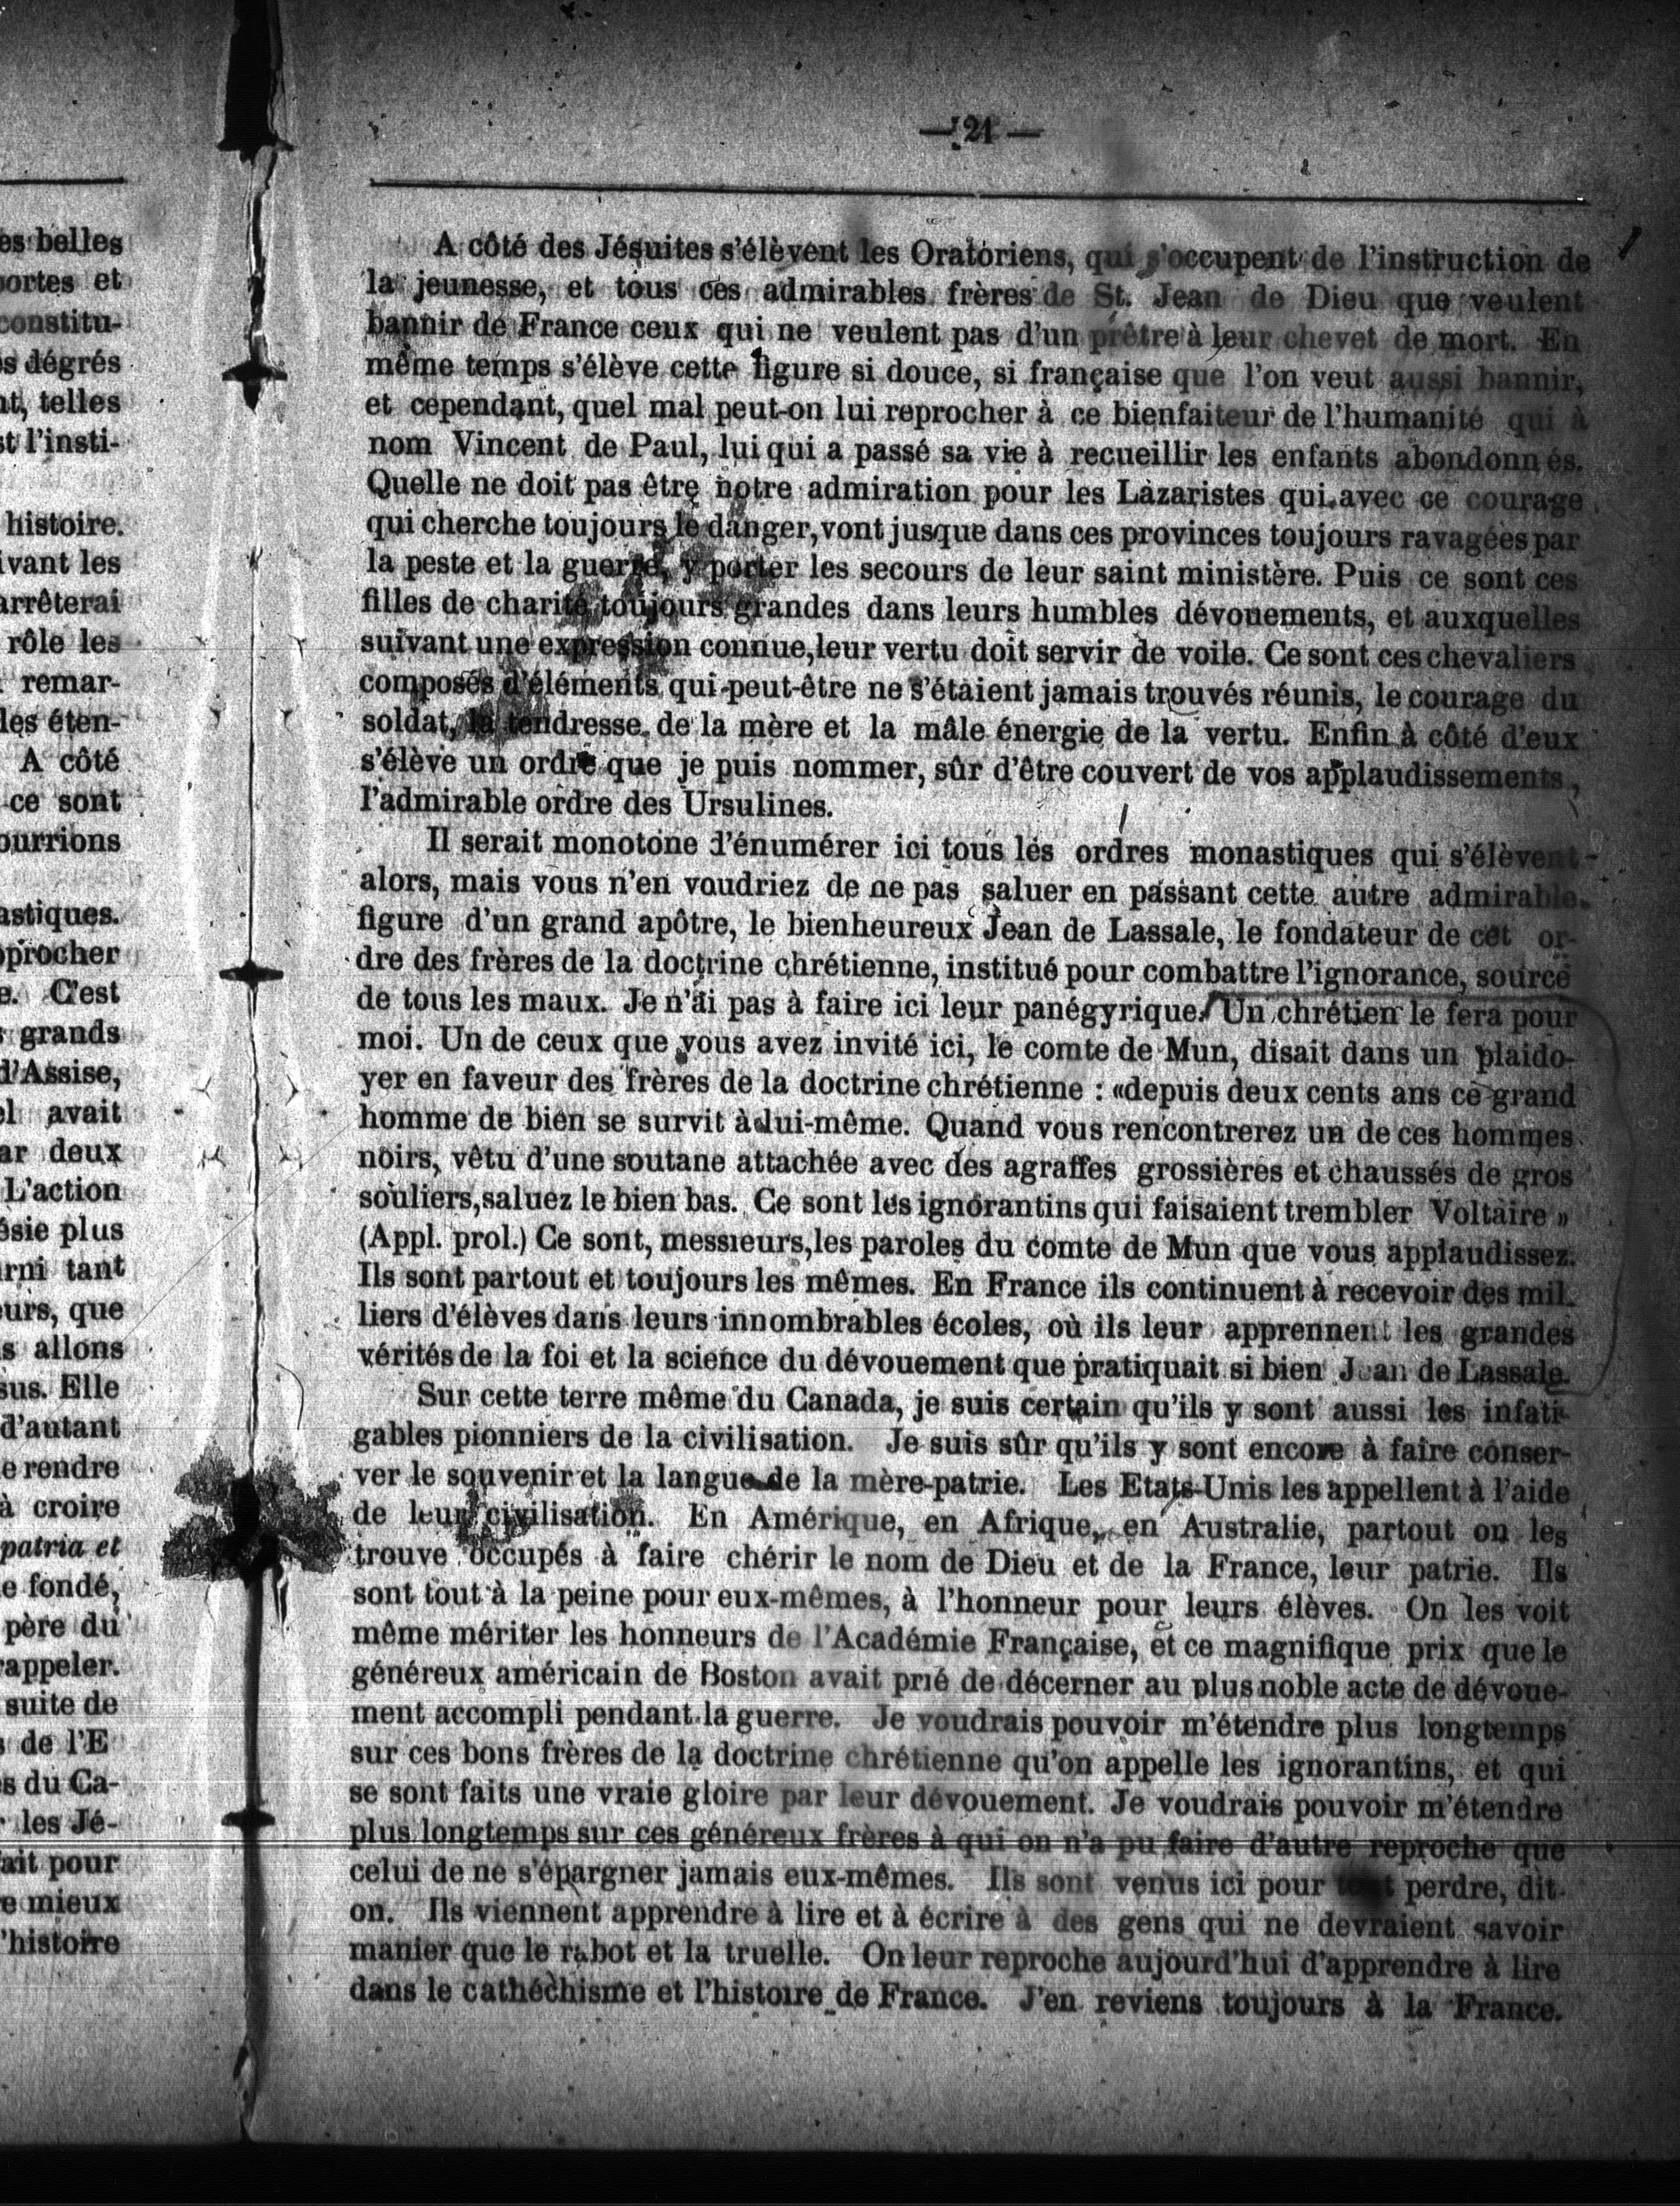 es belles
portes et
constitu-
s dégrés
nt, telles
st l'insti-
histoire.
ivant les
arrêterai
rôle les
remar-
les éten-
A côté
ce sont
ourrions
astiques.
pprocher
e. C'est
s grands
d'Assise,
el avait
ar deux
L'action
ésie plus
rni tant
eurs, que
s allons
sus. Elle
d'autant
e rendre
à croire
patria et
e fondé,
père du
rappeler.
suite de
s de l'E
s du Ca-
r les Jé-
fait pour
re mieux
l'histoire
— 21 —
A côté des Jésuites s'élèvent les Oratoriens, qui s'occupent de l'instruction de
la jeunesse, et tous ces admirables frères de St. Jean de Dieu que veulent
bannir de France ceux qui ne veulent pas d'un prêtre à leur chevet de mort. En
même temps s'élève cette figure si douce, si française que l'on veut aussi bannir,
et cependant, quel mal peut-on lui reprocher à ce bienfaiteur de l'humanité qui à
nom Vincent de Paul, lui qui a passé sa vie à recueillir les enfants abondonnés.
Quelle ne doit pas être notre admiration pour les Lazaristes qui avec ce courage
qui cherche toujours le danger, vont jusque dans ces provinces toujours ravagées par
la peste et la guerre, y porter les secours de leur saint ministère. Puis ce sont ces
filles de charité toujours grandes dans leurs humbles dévouements, et auxquelles
suivant une expression connue, leur vertu doit servir de voile. Ce sont ces chevaliers
composés d'éléments qui peut-être ne s'étaient jamais trouvés réunis, le courage du
soldat, la tendresse de la mère et la mâle énergie de la vertu. Enfin à côté d'eux
s'élève un ordre que je puis nommer, sûr d'être couvert de vos applaudissements,
l'admirable ordre des Ursulines.
Il serait monotone d'énumérer ici tous les ordres monastiques qui s'élèvent
alors, mais vous n'en voudriez de ne pas saluer en passant cette autre admirable
figure d'un grand apôtre, le bienheureux Jean de Lassale, le fondateur de cet or-
dre des frères de la doctrine chrétienne, institué pour combattre l'ignorance, source
de tous les maux. Je n'ai pas à faire ici leur panégyrique. Un chrétien le fera pour
moi. Un de ceux que vous avez invité ici, le comte de Mun, disait dans un plaido-
yer en faveur des frères de la doctrine chrétienne : «depuis deux cents ans ce grand
homme de bien se survit à lui-même. Quand vous rencontrerez un de ces hommes
noirs, vêtu d'une soutane attachée avec des agraffes grossières et chaussés de gros
souliers, saluez le bien bas. Ce sont les ignorantins qui faisaient trembler Voltaire »
(Appl. prol.) Ce sont, messieurs, les paroles du comte de Mun que vous applaudissez.
Ils sont partout et toujours les mêmes. En France ils continuent à recevoir des mil-
liers d'élèves dans leurs innombrables écoles, où ils leur apprennent les grandes
vérités de la foi et la science du dévouement que pratiquait si bien Jean de Lassale.
Sur cette terre même du Canada, je suis certain qu'ils y sont aussi les infati-
gables pionniers de la civilisation. Je suis sûr qu'ils y sont encore à faire conser-
ver le souvenir et la langue de la mère-patrie. Les Etats-Unis les appellent à l'aide
de leur civilisation. En Amérique, en Afrique, en Australie, partout on les
trouve occupés à faire chérir le nom de Dieu et de la France, leur patrie. Ils
sont tout à la peine pour eux-mêmes, à l'honneur pour leurs élèves. On les voit
même mériter les honneurs de l'Académie Française, et ce magnifique prix que le
généreux américain de Boston avait prié de décerner au plus noble acte de dévoue-
ment accompli pendant la guerre. Je voudrais pouvoir m'étendre plus longtemps
sur ces bons frères de la doctrine chrétienne qu'on appelle les ignorantins, et qui
se sont faits une vraie gloire par leur dévouement. Je voudrais pouvoir m'étendre
plus longtemps sur ces généreux frères à qui on n'a pu faire d'autre reproche que
celui de ne s'épargner jamais eux-mêmes. Ils sont venus ici pour tout perdre, dit-
on. Ils viennent apprendre à lire et à écrire à des gens qui ne devraient savoir
manier que le rabot et la truelle. On leur reproche aujourd'hui d'apprendre à lire
dans le cathéchisme et l'histoire de France. J'en reviens toujours à la France.